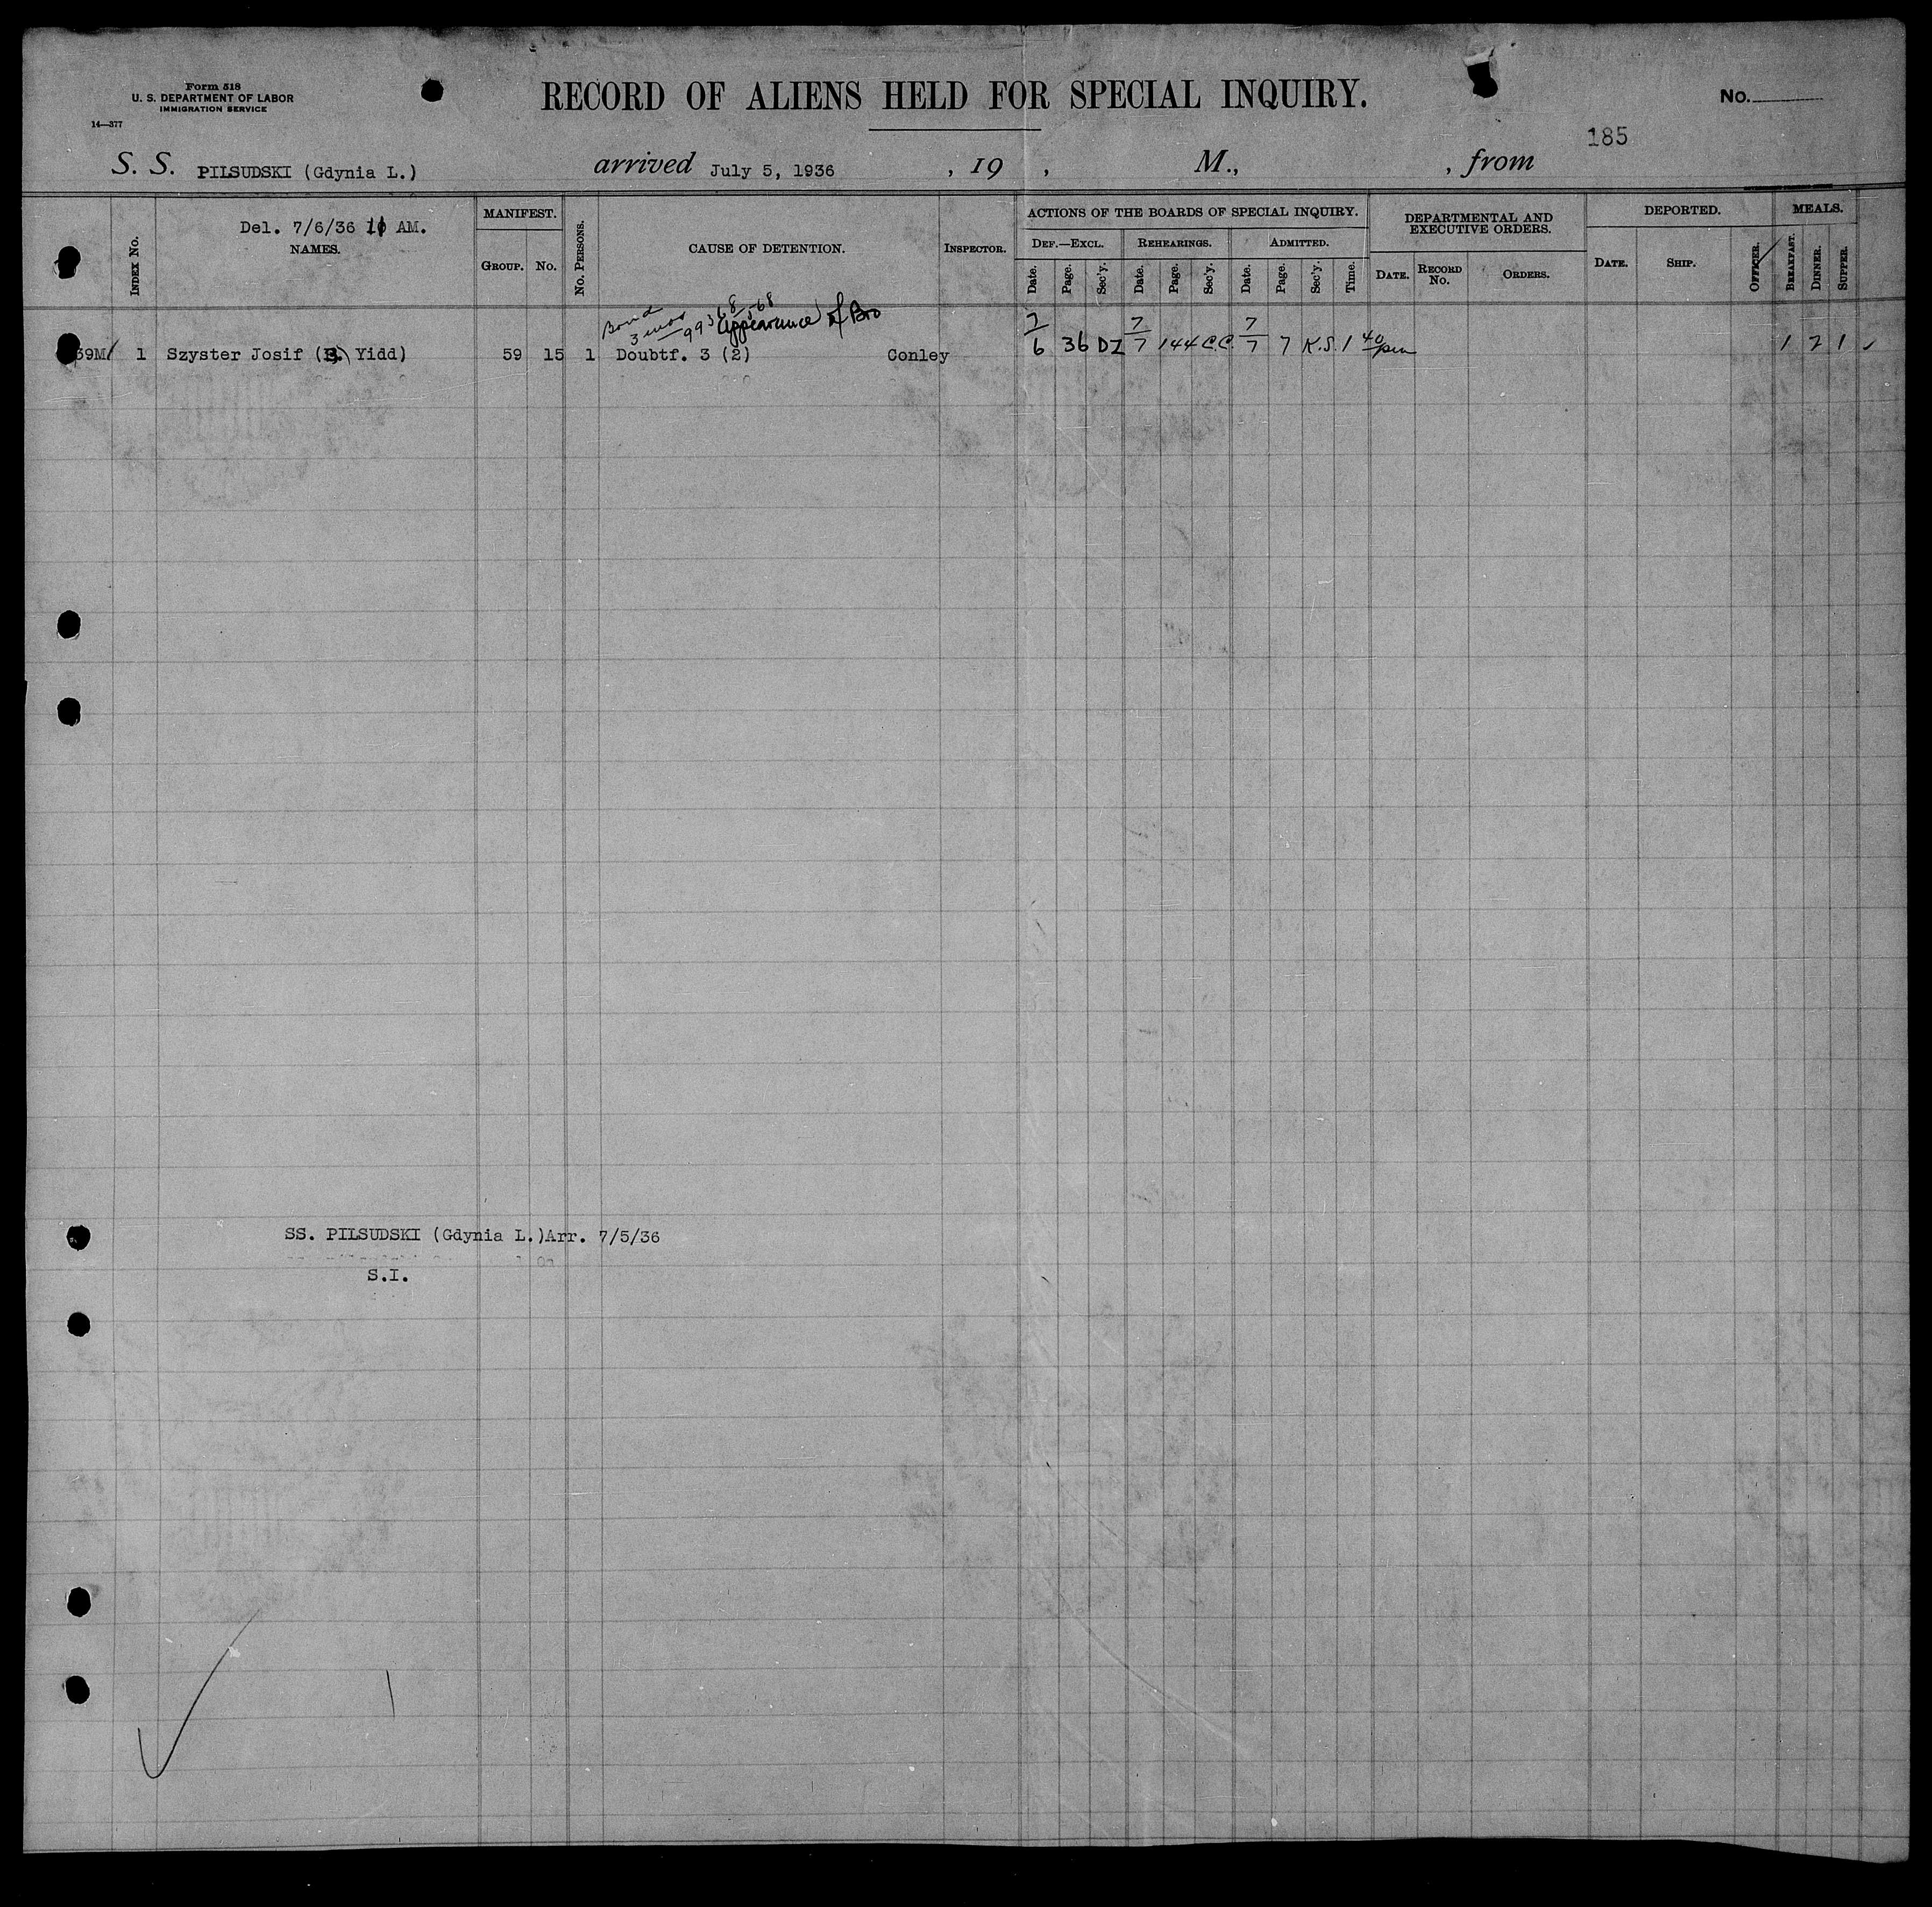 Form 518
U. S. DEPARTMENT OF LABOR
IMMIGRATION SERVICE
14—377
RECORD OF ALIENS HELD FOR SPECIAL INQUIRY.
No.
185
S. S. PILSUDSKI (Gdynia L.) arrived July 5, 1936 , 19 , M., , from
Del. 7/6/36 AM.
INDEX No. NAMES. MANIFEST. GROUP. No. No. PERSONS. CAUSE OF DETENTION. INSPECTOR. ACTIONS OF THE BOARDS OF SPECIAL INQUIRY. DEF.—EXCL. Date. Page. Sec'y. REHEARINGS. Date. Page. Sec'y. ADMITTED. Date. Page. Sec'y. Time. DEPARTMENTAL AND EXECUTIVE ORDERS. DATE. RECORD No. ORDERS. DEPORTED. DATE. SHIP. OFFICER. MEALS. BREAKFAST. DINNER. SUPPER.
Bond
3 mos Appearance of Bro
39M 1 Szyster Josif ( Yidd) 59 15 1 Doubtf. 3 (2) Conley 7/6 36 DZ 7/7 144 C.C. 7/7 7 K.S. 1 40 pm 1 2 1 ✓
SS. PILSUDSKI (Gdynia L.)Arr. 7/5/36
S.I.